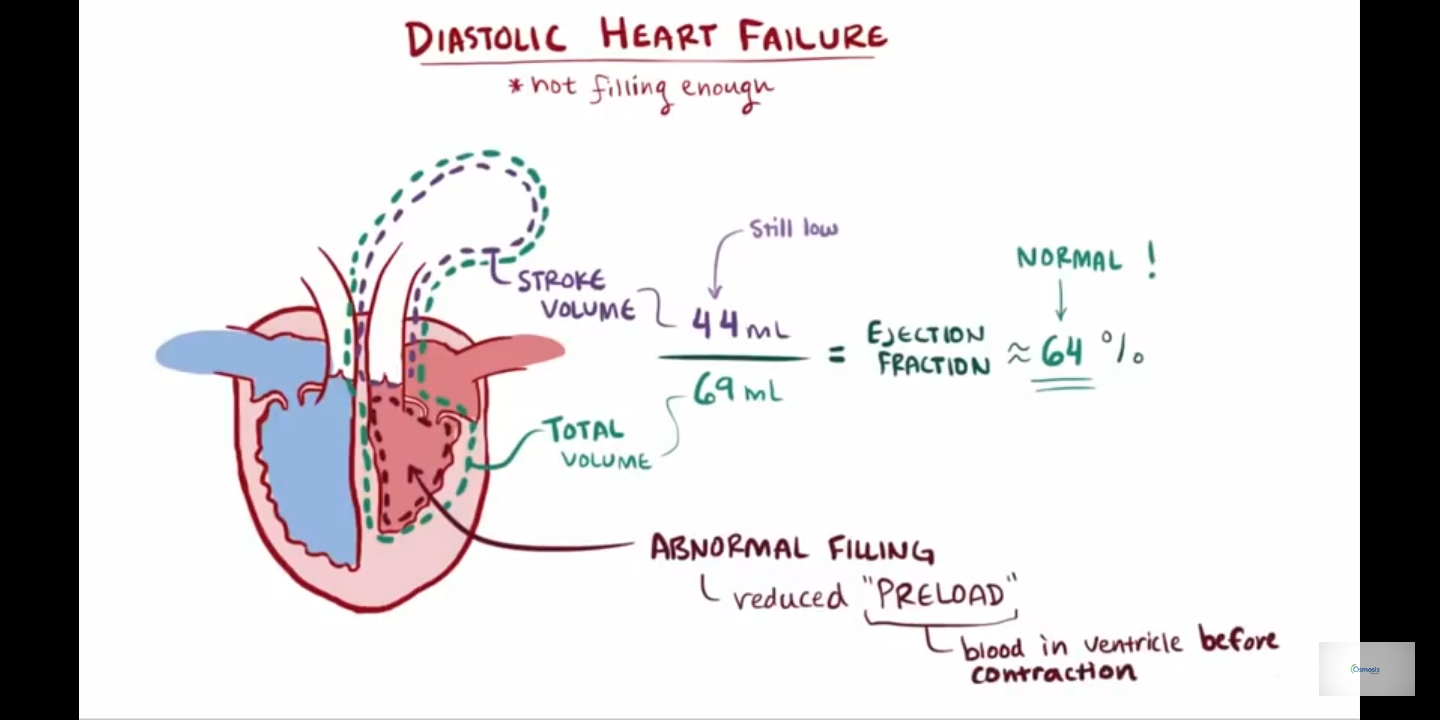 DIASTOLIC HEART FAILURE
* not filling enough
Still low
NORMAL !
STROKE
VOLUME
44 mL
69 mL
=
EJECTION
FRACTION
≈ 64 %
TOTAL
VOLUME
ABNORMAL FILLING
reduced "PRELOAD"
blood in ventricle before
contraction
Osmosis